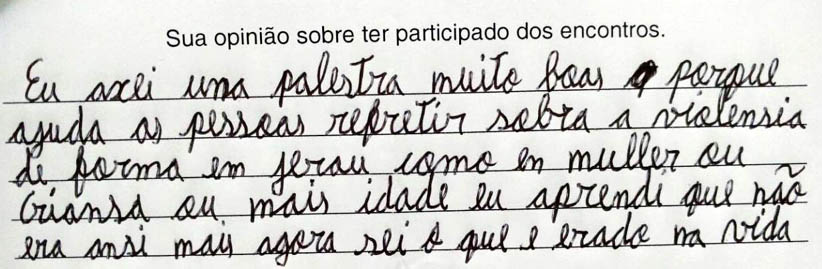 Sua opinião sobre ter participado dos encontros.
Eu axei uma palestra muito boas porque
ajuda as pessoas refretir sobra a violensia
de forma em jerau como en muller ou
criansa ou mais idade eu aprendi que não
era ansi mais agora sei o que e erado na vida